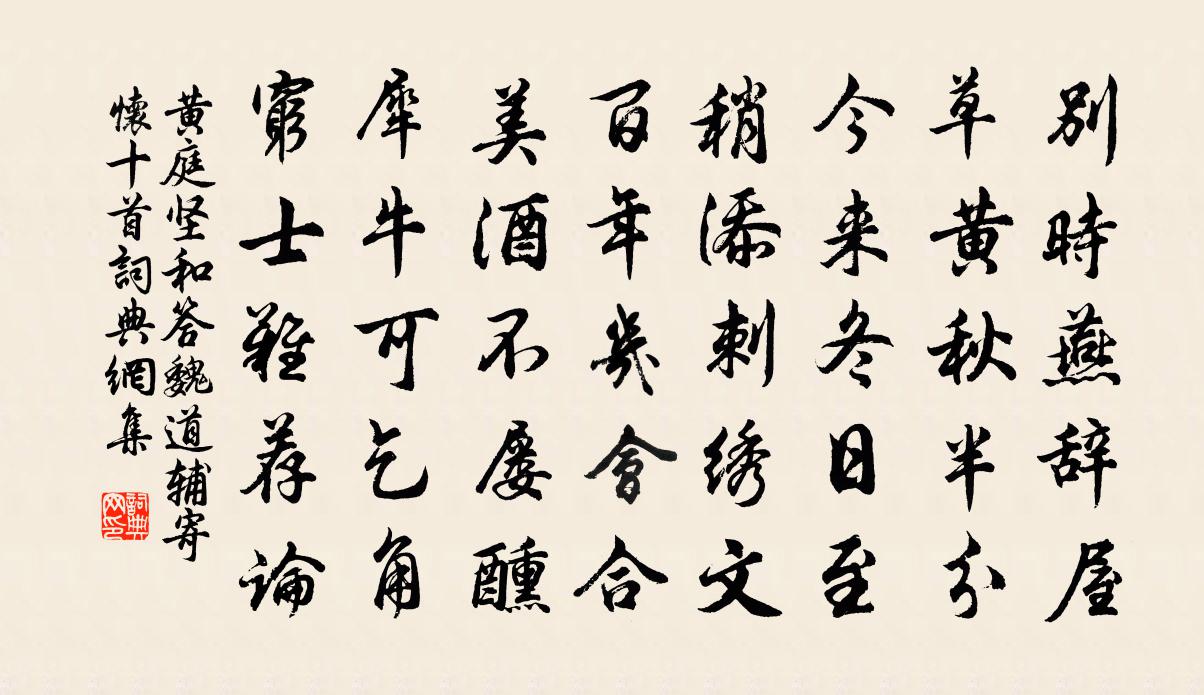 别時燕辞屋
草黄秋半分
今来冬日至
稍添刺绣文
百年幾會合
美酒不屡醺
犀牛可乞角
窮士難荐論
黄庭坚和答魏道辅寄
懷十首詞典網集
詞典
网印